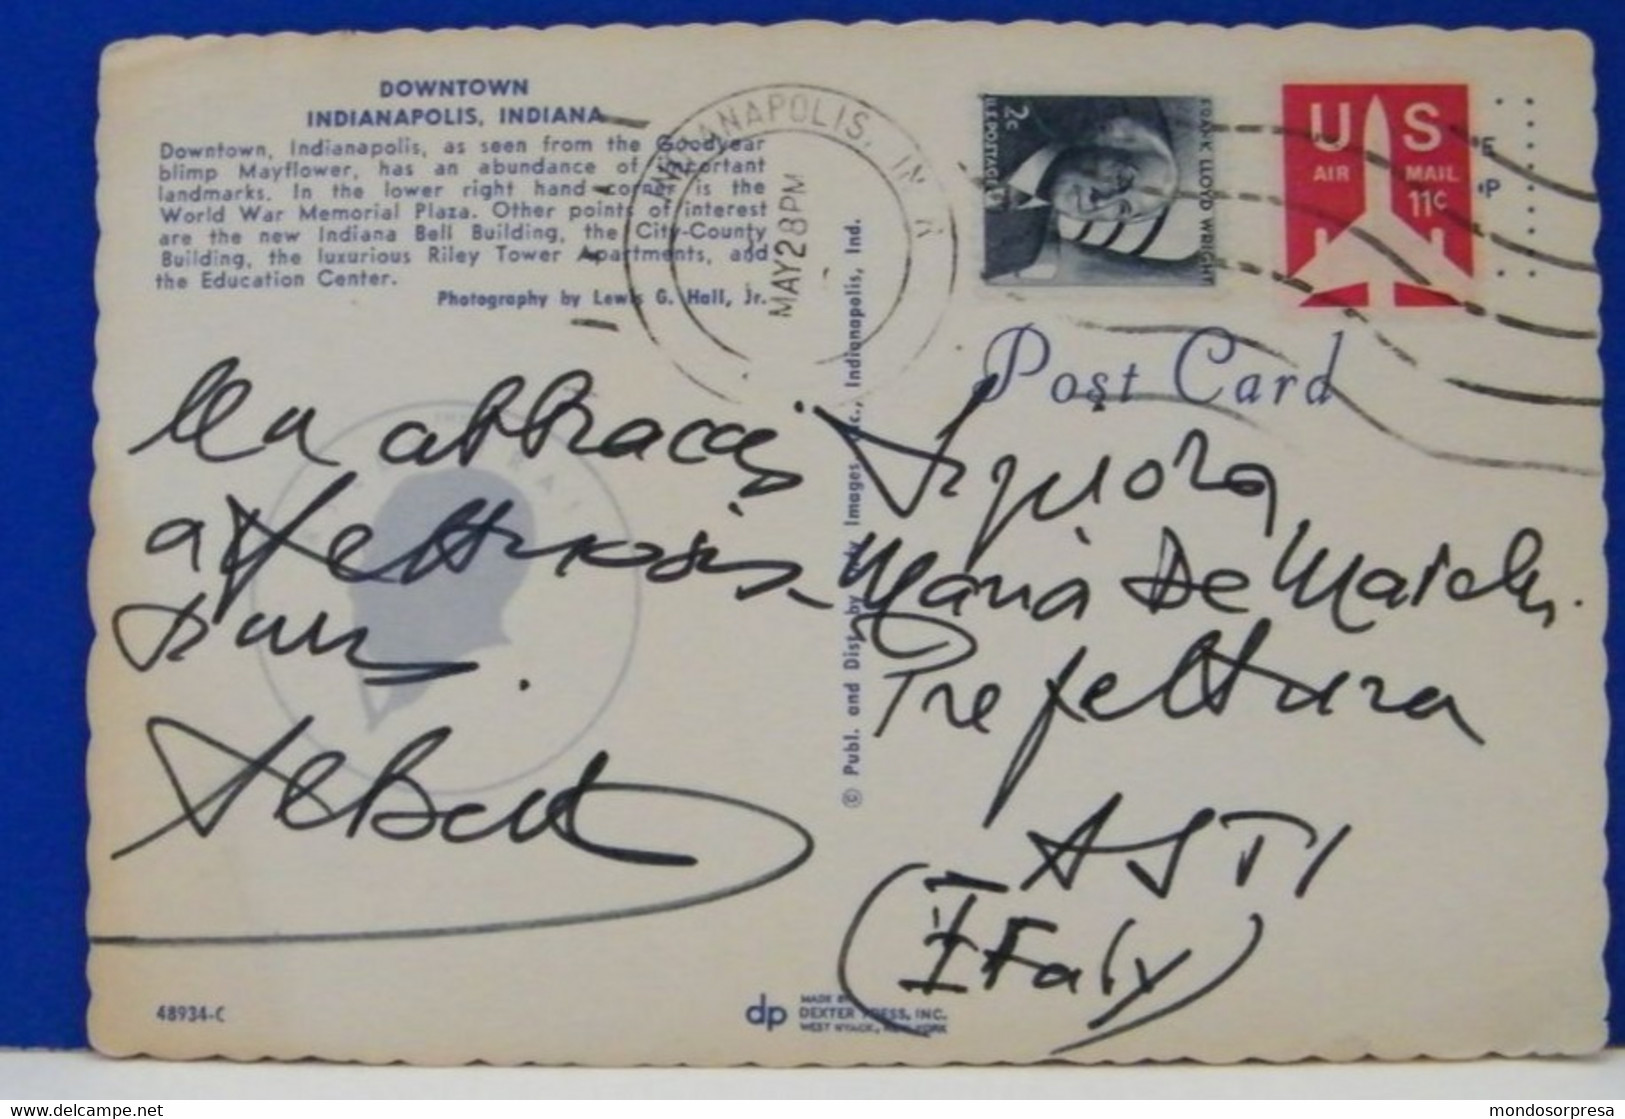 DOWNTOWN
INDIANAPOLIS, INDIANA
Downtown, Indianapolis, as seen from the Goodyear
blimp Mayflower, has an abundance of important
landmarks. In the lower right hand corner is the
World War Memorial Plaza. Other points of interest
are the new Indiana Bell Building, the City-County
Building, the luxurious Riley Tower Apartments, and
the Education Center.
Photography by Lewis G. Hall, Jr.
INDIANAPOLIS, IN
MAY 28 PM
2c
U.S. POSTAGE
FRANK LLOYD WRIGHT
US
AIR MAIL
11c
Post Card
Un abbraccio
affettuosis
simo.
Albert
Signora
Maria De Marchi
Prefettura
ASTI
(Italy)
© Publ. and Dist. by Images Inc., Indianapolis, Ind.
48934-C
dp
MADE BY
DEXTER PRESS, INC.
WEST NYACK, NEW YORK
delcampe.net
mondosorpresa